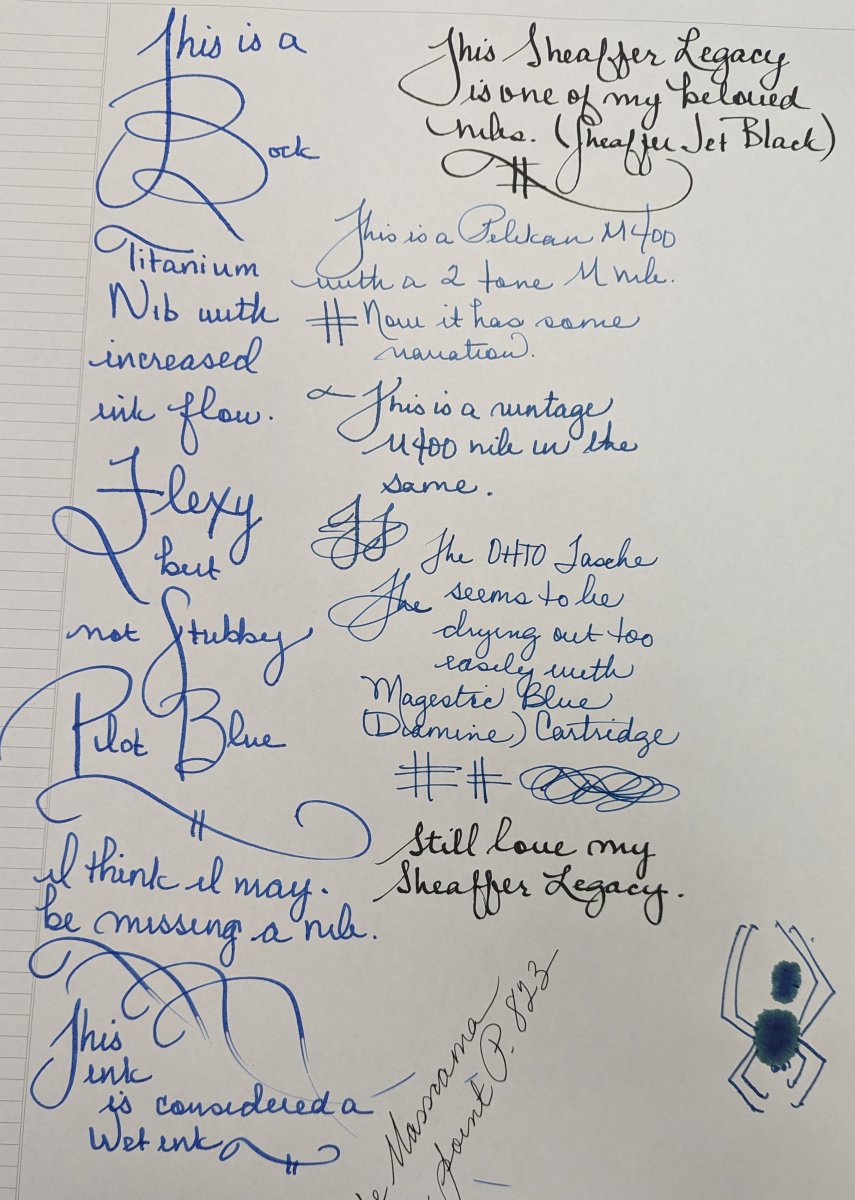 This is a
Bock
Titanium
Nib with
increased
ink flow.
Flexy
but
not Stubby
Pilot Blue
I think I may.
be missing a nib.
This
ink
is considered a
Wet ink
This Sheaffer Legacy
is one of my beloved
nibs. (Sheaffer Jet Black)
This is a Pelikan M400
with a 2 tone M nib.
Now it has some
variation.
This is a vintage
M400 nib in the
same.
The OHTO Tasche
The seems to be
drying out too
easily with
Magestic Blue
(Diamine) Cartridge
Still love my
Sheaffer Legacy.
Point P. 823